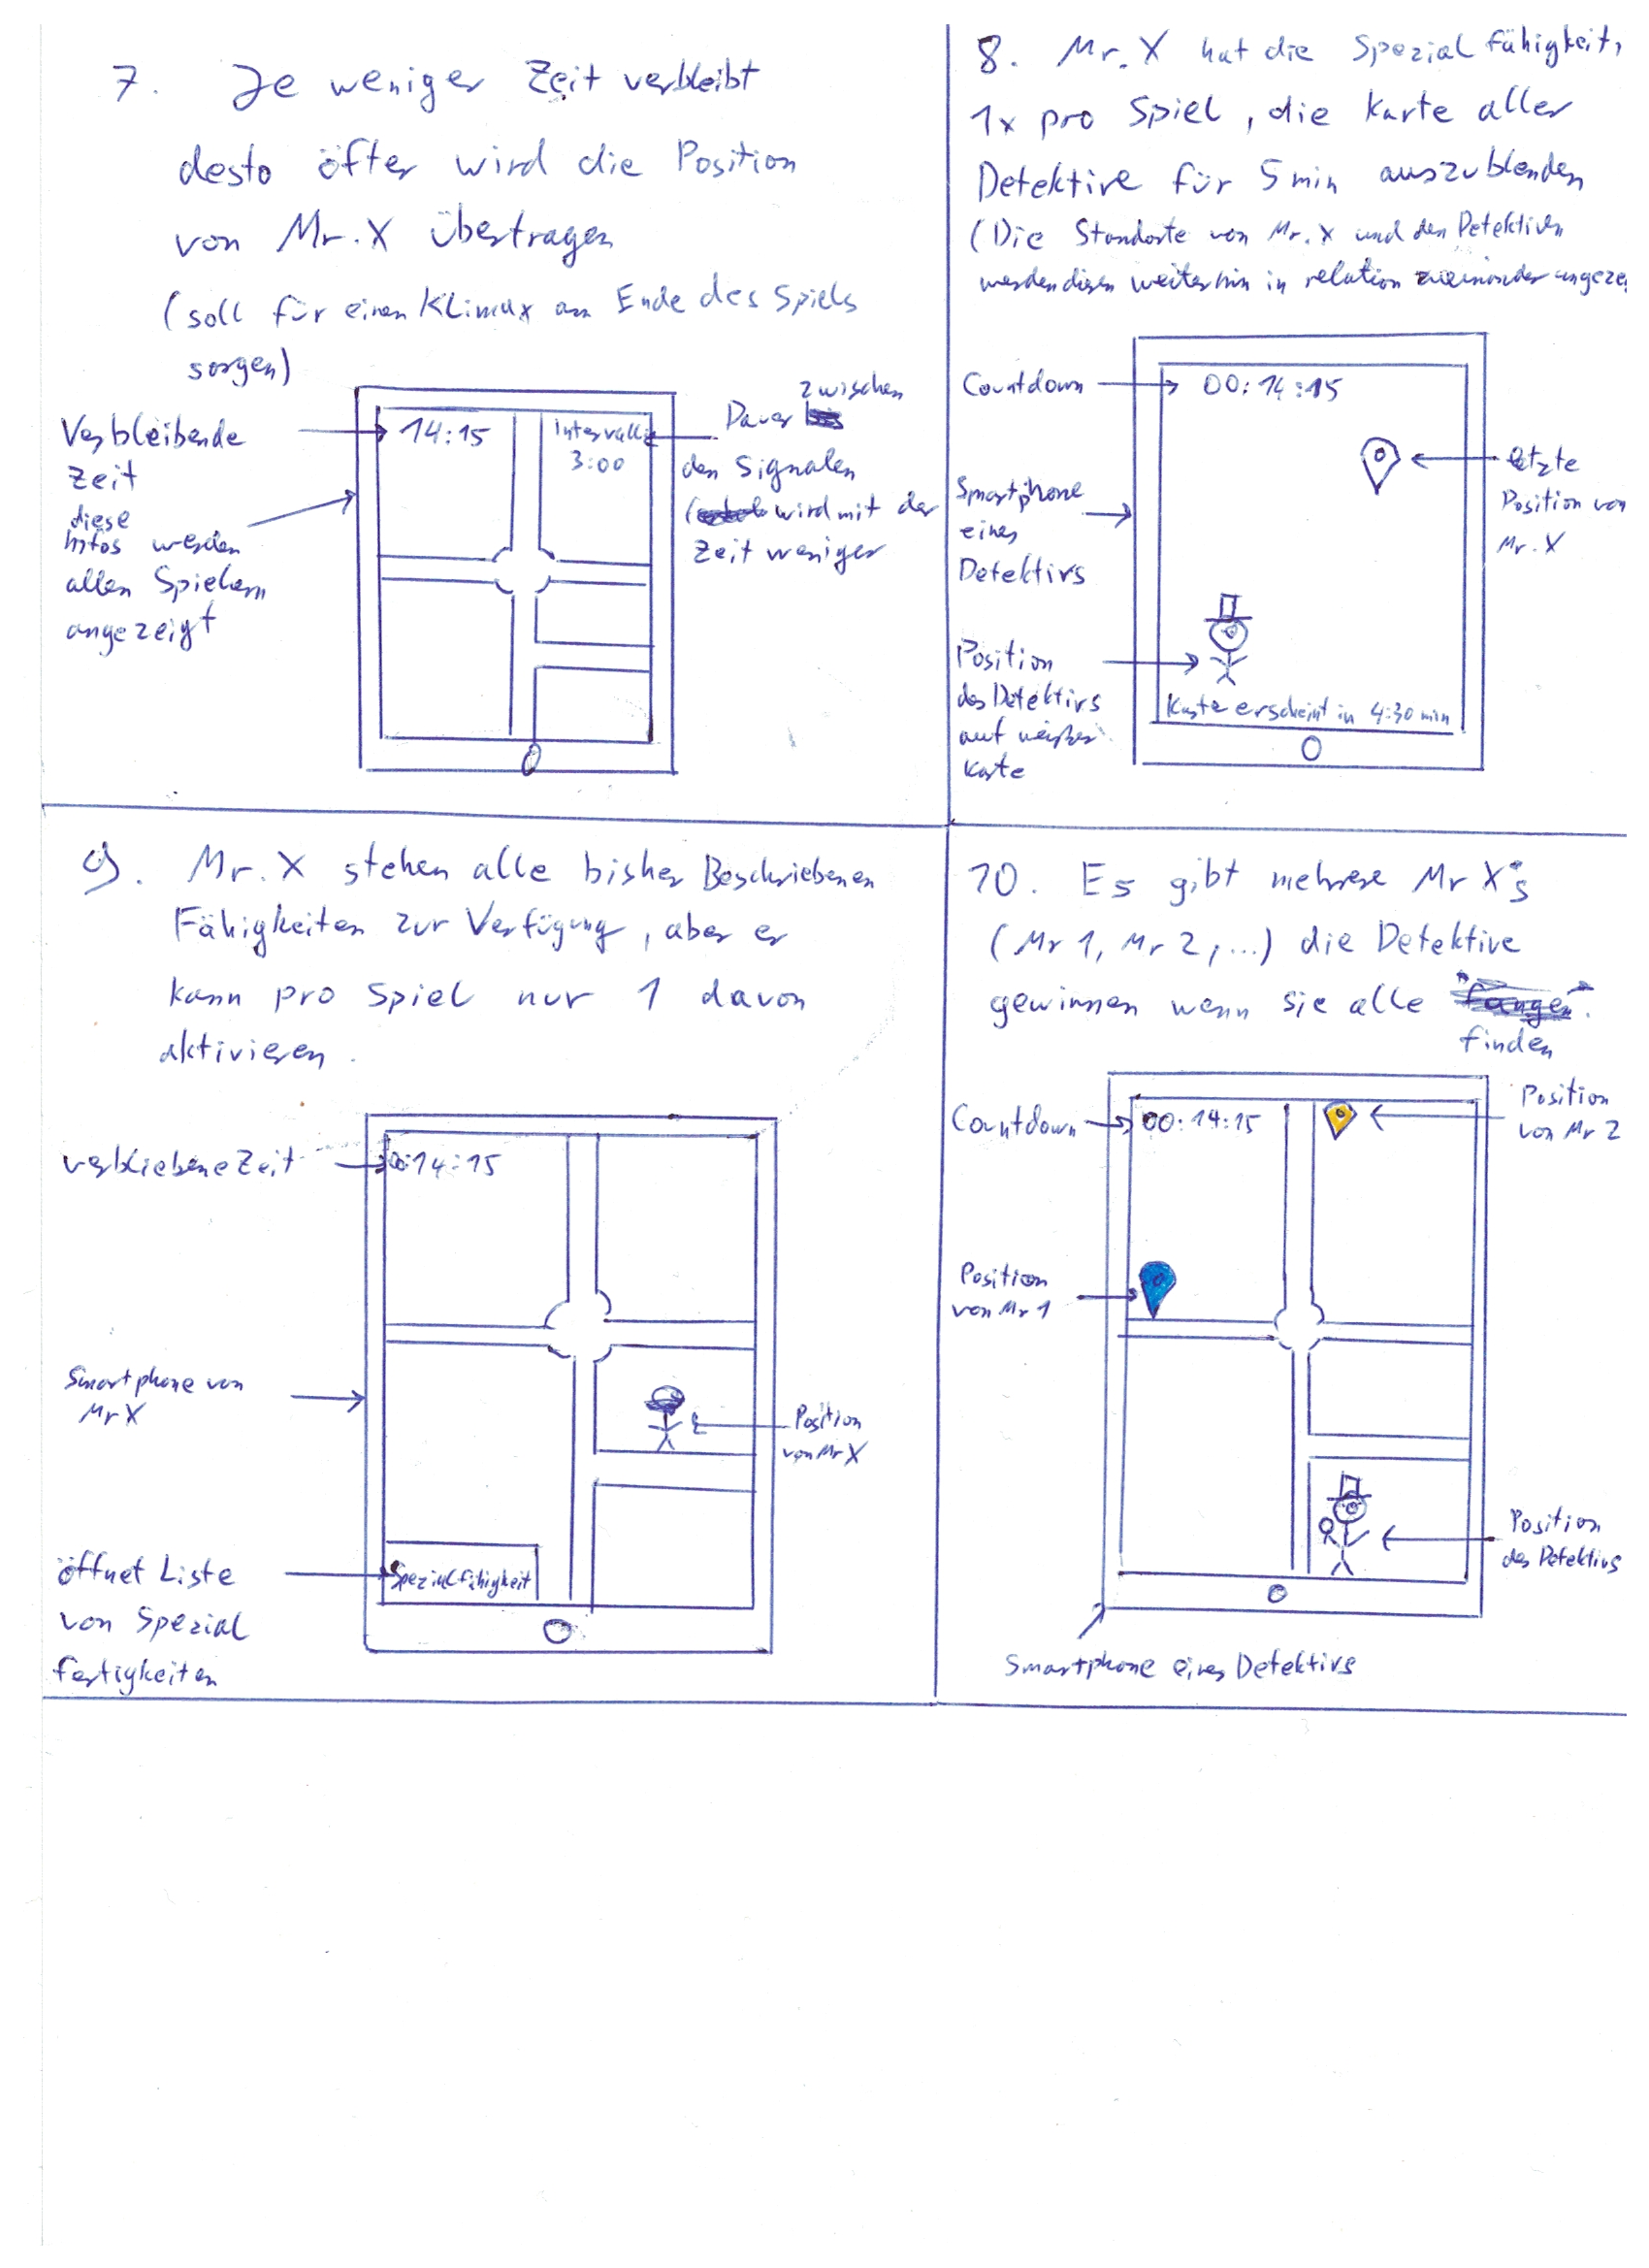 7. Je weniger Zeit verbleibt
desto öfter wird die Position
von Mr. X übertragen
(soll für einen Klimax am Ende des Spiels
sorgen)
Verbleibende
Zeit
diese
Infos werden
allen Spielern
angezeigt
14:15
Intervall:
3:00
zwischen
Dauer
den Signalen
(wird mit der
Zeit weniger
8. Mr. X hat die Spezialfähigkeit,
1x pro Spiel, die Karte aller
Detektive für 5 min auszublenden
(Die Standorte von Mr. X und den Detektiven
werden diesen weiterhin in relation zueinander
Countdown
00:14:15
Smartphone
eines
Detektivs
letzte
Position von
Mr. X
Position
des Detektivs
auf weißer
Karte
Karte erscheint in 4:30 min
9. Mr. X stehen alle bisher Beschriebenen
Fähigkeiten zur Verfügung, aber er
kann pro Spiel nur 1 davon
aktivieren.
verbliebene Zeit
00:14:15
Smartphone von
Mr X
Position
von Mr X
öffnet Liste
von Spezial
fertigkeiten
Spezialfähigkeit
10. Es gibt mehrere Mr X's
(Mr 1, Mr 2, ...) die Detektive
gewinnen wenn sie alle
finden
Countdown
00:14:15
Position
von Mr 2
Position
von Mr 1
Position
des Detektivs
Smartphone eines Detektivs